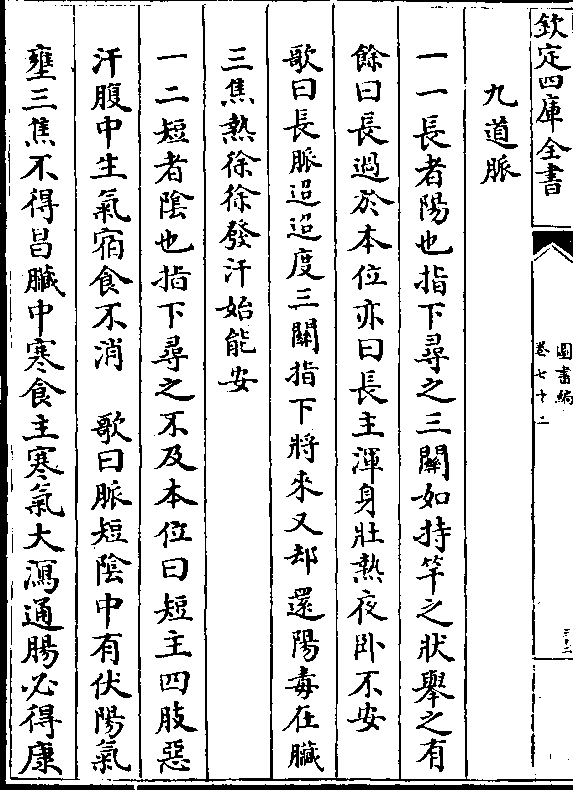 欽定四庫全書
圖書編
卷七十二
九道脈
一一長者陽也指下尋之三關如持竿之狀舉之有
餘曰長過於本位亦曰長主渾身壯熱夜卧不安
歌曰長脈迢迢度三關指下將來又却還陽毒在臟
三焦熱徐徐發汗始能安
一二短者陰也指下尋之不及本位曰短主四肢惡
汗腹中生氣宿食不消　歌曰脈短陰中有伏陽氣
壅三焦不得昌臟中寒食主寒氣大瀉通腸必得康